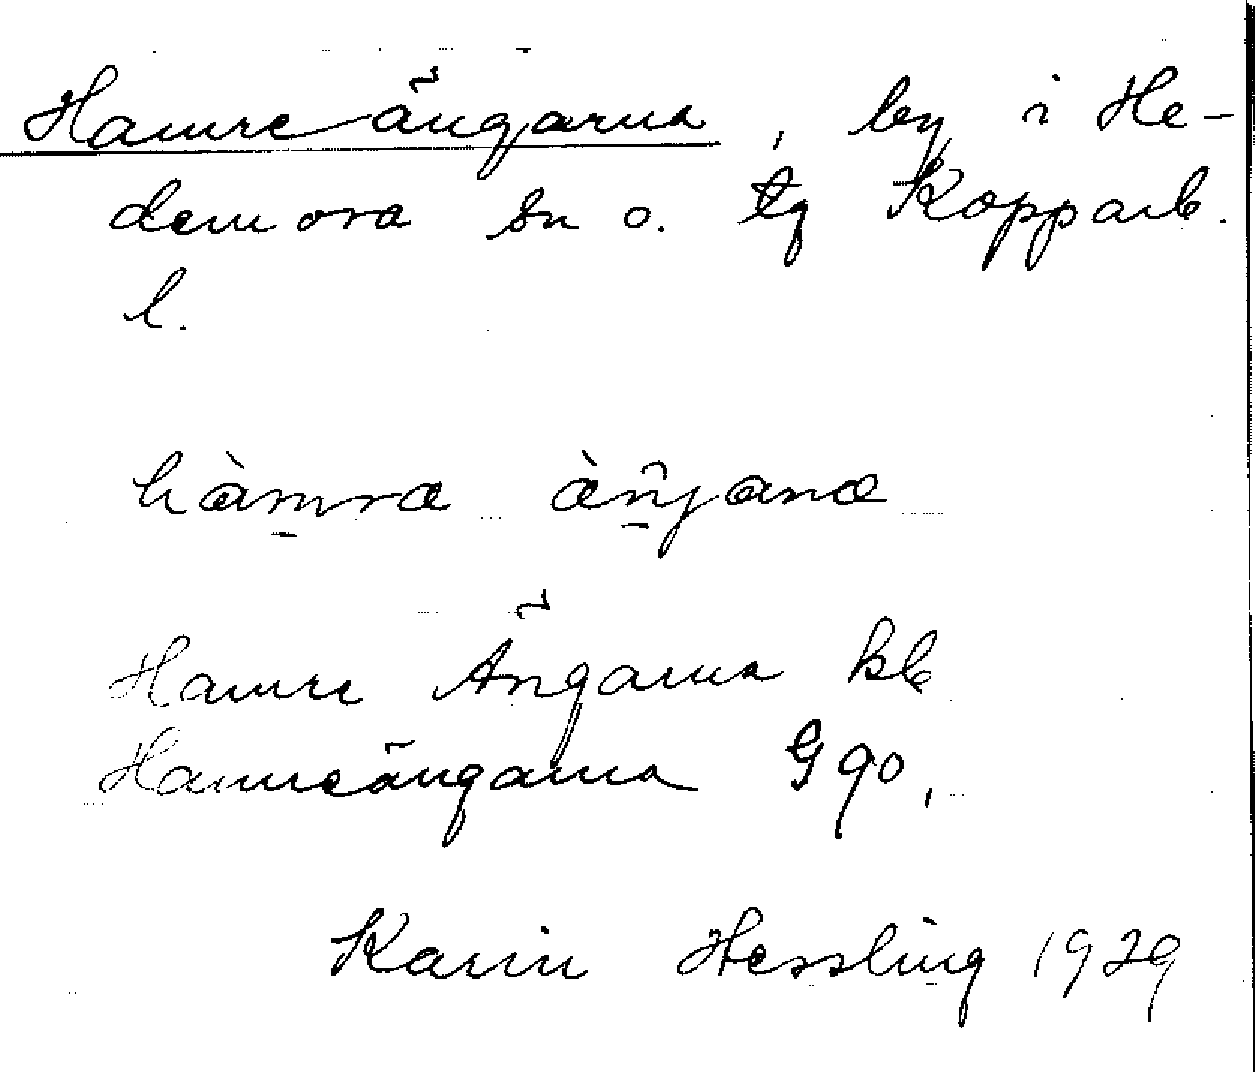 Hamreängarna, by i He-
demora sn o. tg Kopparb.
l.
hàmra
Hamre Ängarna kb
Hamreängarna G 90,
Karin Hessling 1929